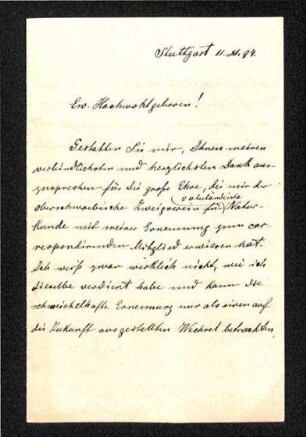 Stuttgart 11. XI. 94.
Ew. Hochwohlgeboren!
Gestatten Sie mir, Ihnen meinen
verbindlichsten und herzlichsten Dank aus-
zusprechen für die große Ehre, die mir der
vaterländische
oberschwäbische Zweigverein für Natur-
kunde mit meiner Ernennung zum cor-
respondirenden Mitglied erwiesen hat.
Ich weiß zwar wirklich nicht, wie ich
dieselbe verdient habe und kann die
schmeichelhafte Ernennung nur als einen auf
die Zukunft ausgestellten Wechsel betrachten,